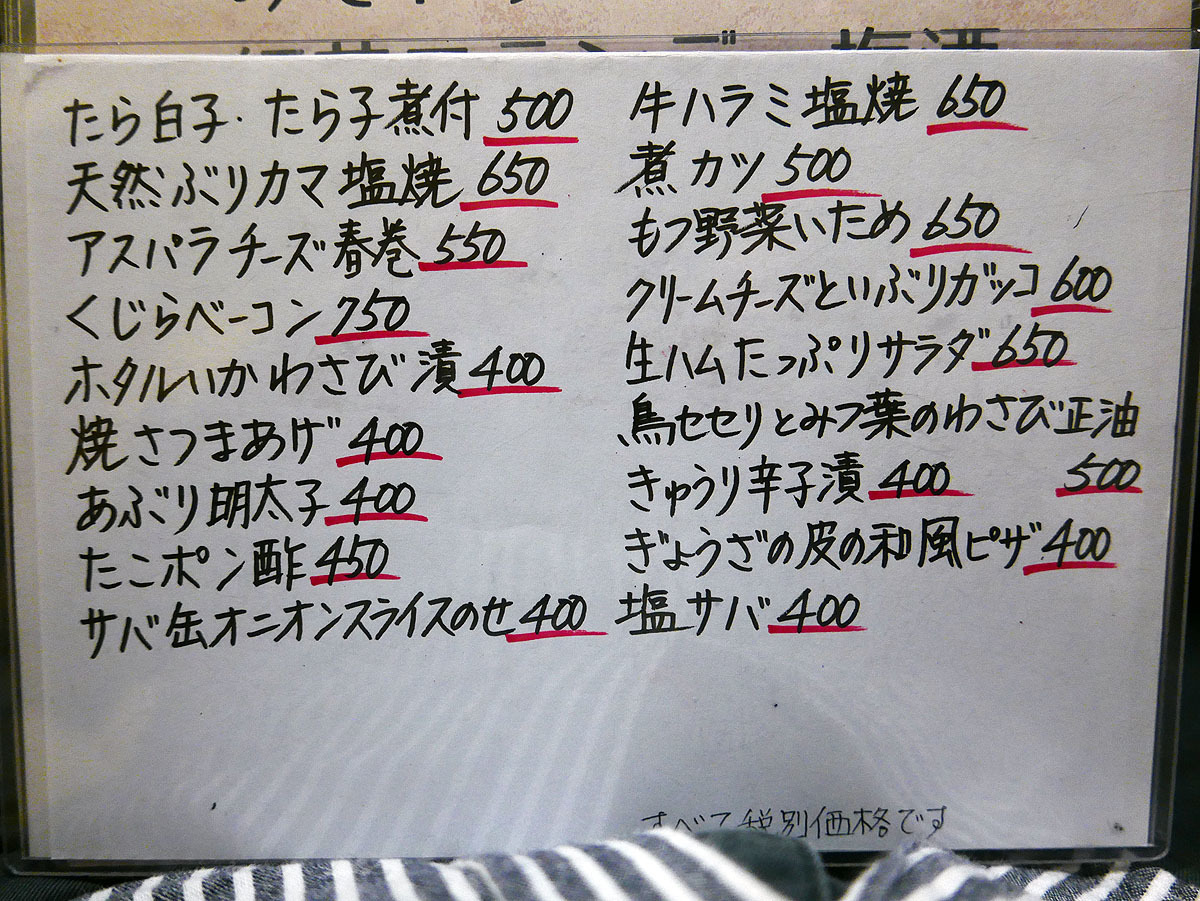 たら白子・たら子煮付 500
天然ぶりカマ塩焼 650
アスパラチーズ春巻 550
くじらベーコン 750
ホタルいかわさび漬 400
焼さつまあげ 400
あぶり明太子 400
たこポン酢 450
サバ缶オニオンスライスのせ 400
牛ハラミ塩焼 650
煮カツ 500
もつ野菜いため 650
クリームチーズといぶりガッコ 600
生ハムたっぷりサラダ 650
鳥セセリとみつ葉のわさび正油
500
きゅうり辛子漬 400
ぎょうざの皮の和風ピザ 400
塩サバ 400
すべて税別価格です